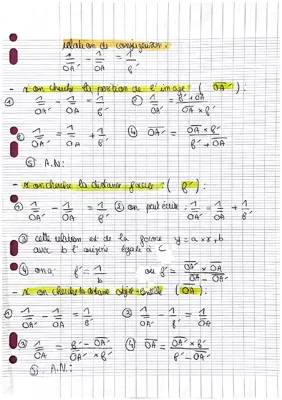 relation de conjugaison :
1/OA' - 1/OA = 1/f'
- si on cherche la position de l'image ( OA' ) :
① 1/OA' - 1/OA = 1/f' ② 1/OA' = f' + OA / OA × f'
③ 1/OA' = 1/OA + 1/f' ④ OA' = OA × f' / f' + OA
⑤ A.N :
- si on cherche la distance focale : ( f' ) :
① 1/OA' - 1/OA = 1/f' ② on peut écrire : 1/OA' = 1/OA + 1/f'
③ cette relation est de la forme y = a × x, b
avec b l'origine égale à
④ on a : f' = 1/b ou f' = OA' × OA / OA - OA'
- si on cherche la distance objet - ( OA ) :
① 1/OA' - 1/OA = 1/f' ② 1/OA' - 1/f' = 1/OA
③ 1/OA = f' - OA' / OA' × f' ④ OA = OA' × f' / f' - OA'
⑤ A.N :